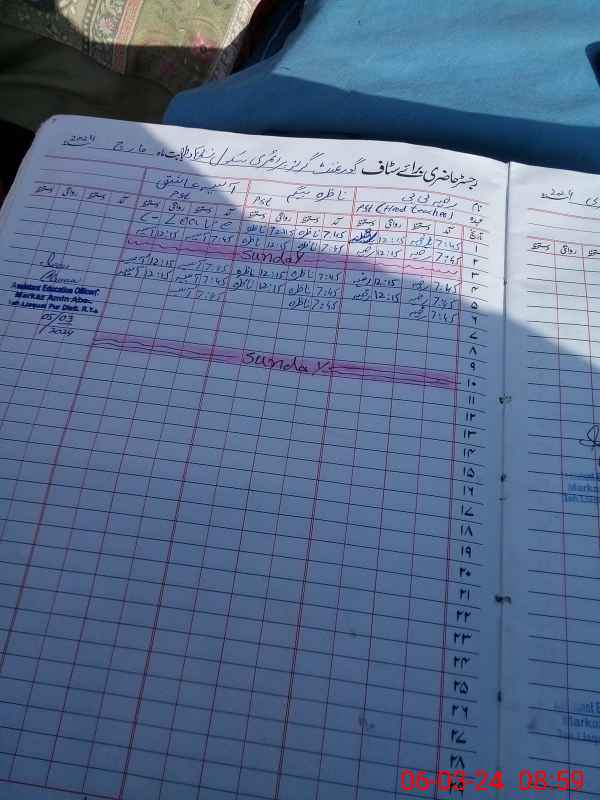 رجسٹر حاضری برائے سٹاف گورنمنٹ گرلز پرائمری سکول ماہ مارچ 2024
نام
رضیہ بی بی
ناظرہ بیگم
آسیہ
عہدہ
PST (Head teacher)
PST
PST
تاریخ آمد دستخط روانگی دستخط آمد دستخط روانگی دستخط آمد دستخط روانگی دستخط
۱ 7:45 12:15 7:45 ناظرہ 12:15 ناظرہ C-Leave
۲ 7:45 12:15 7:45 ناظرہ 12:15 ناظرہ 7:45 آسیہ 12:15 آسیہ
۳ Sunday
۴ 7:45 12:15 7:45 ناظرہ 12:15 ناظرہ 7:45 آسیہ 12:15 آسیہ
۵ 7:45 12:15 7:45 ناظرہ 12:15 ناظرہ 7:45 آسیہ 12:15 آسیہ
۶ 7:45 7:45 ناظرہ 7:45 آسیہ
۷
۸
۹
۱۰ Sunday
۱۱
۱۲
۱۳
۱۴
۱۵
۱۶
۱۷
۱۸
۱۹
۲۰
۲۱
۲۲
۲۳
۲۴
۲۵
۲۶
۲۷
۲۸
۲۹
Assistant Education Officer
Markaz Amin Abad
Teh Liaquat Pur Distt. R.Y.K
05/03/2024
2024
Markaz
Teh Liaq
Markaz
Teh Liaq
06-03-24 08:59